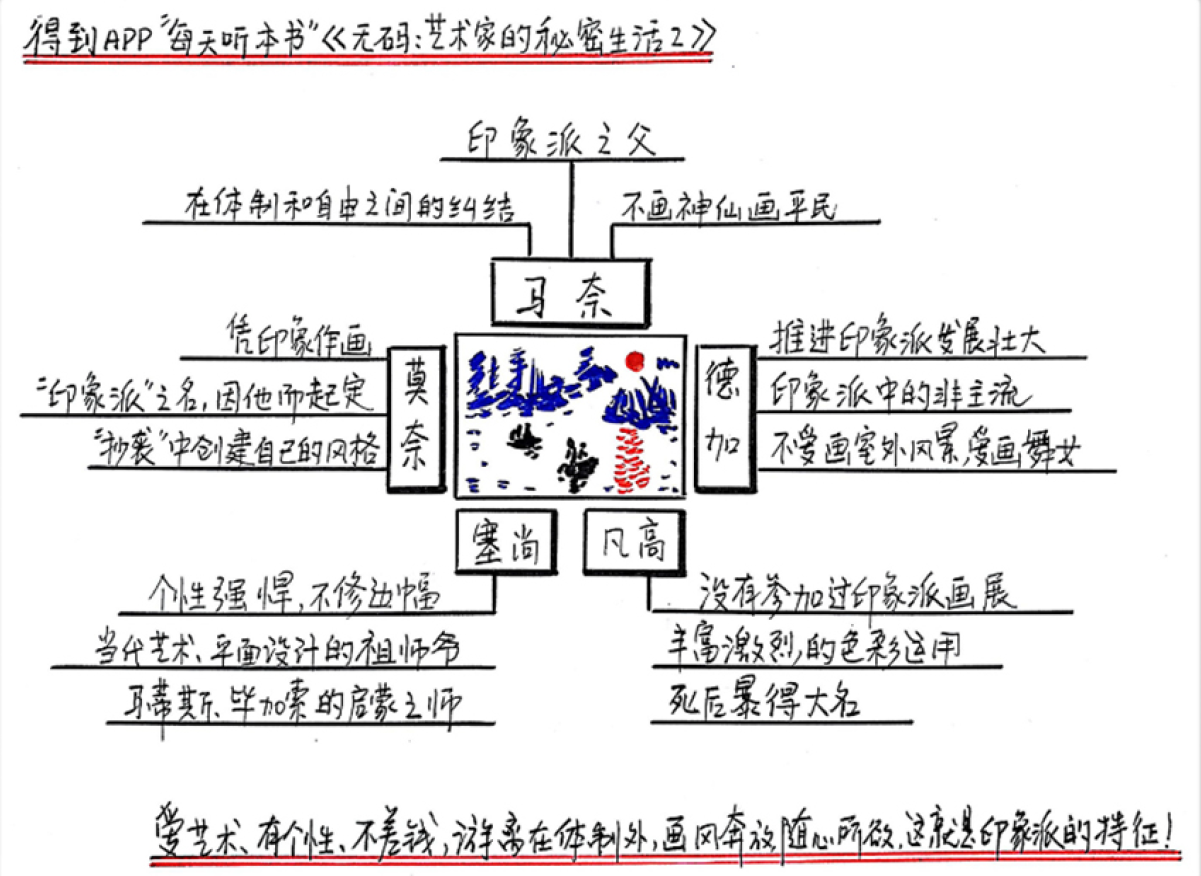 得到APP"每天听本书"《无码:艺术家的秘密生活2》
印象派之父
在体制和自由之间的纠结
不画神仙画平民
马奈
凭印象作画
"印象派"之名,因他而起定
"抄袭"中创建自己的风格
莫奈
德加
推进印象派发展壮大
印象派中的非主流
不爱画室外风景,爱画舞女
塞尚
凡高
个性强悍,不修边幅
当代艺术、平面设计的祖师爷
马蒂斯、毕加索的启蒙之师
没有参加过印象派画展
丰富激烈的色彩运用
死后暴得大名
爱艺术、有个性、不差钱,游离在体制外,画风奔放,随心所欲,这就是印象派的特征!